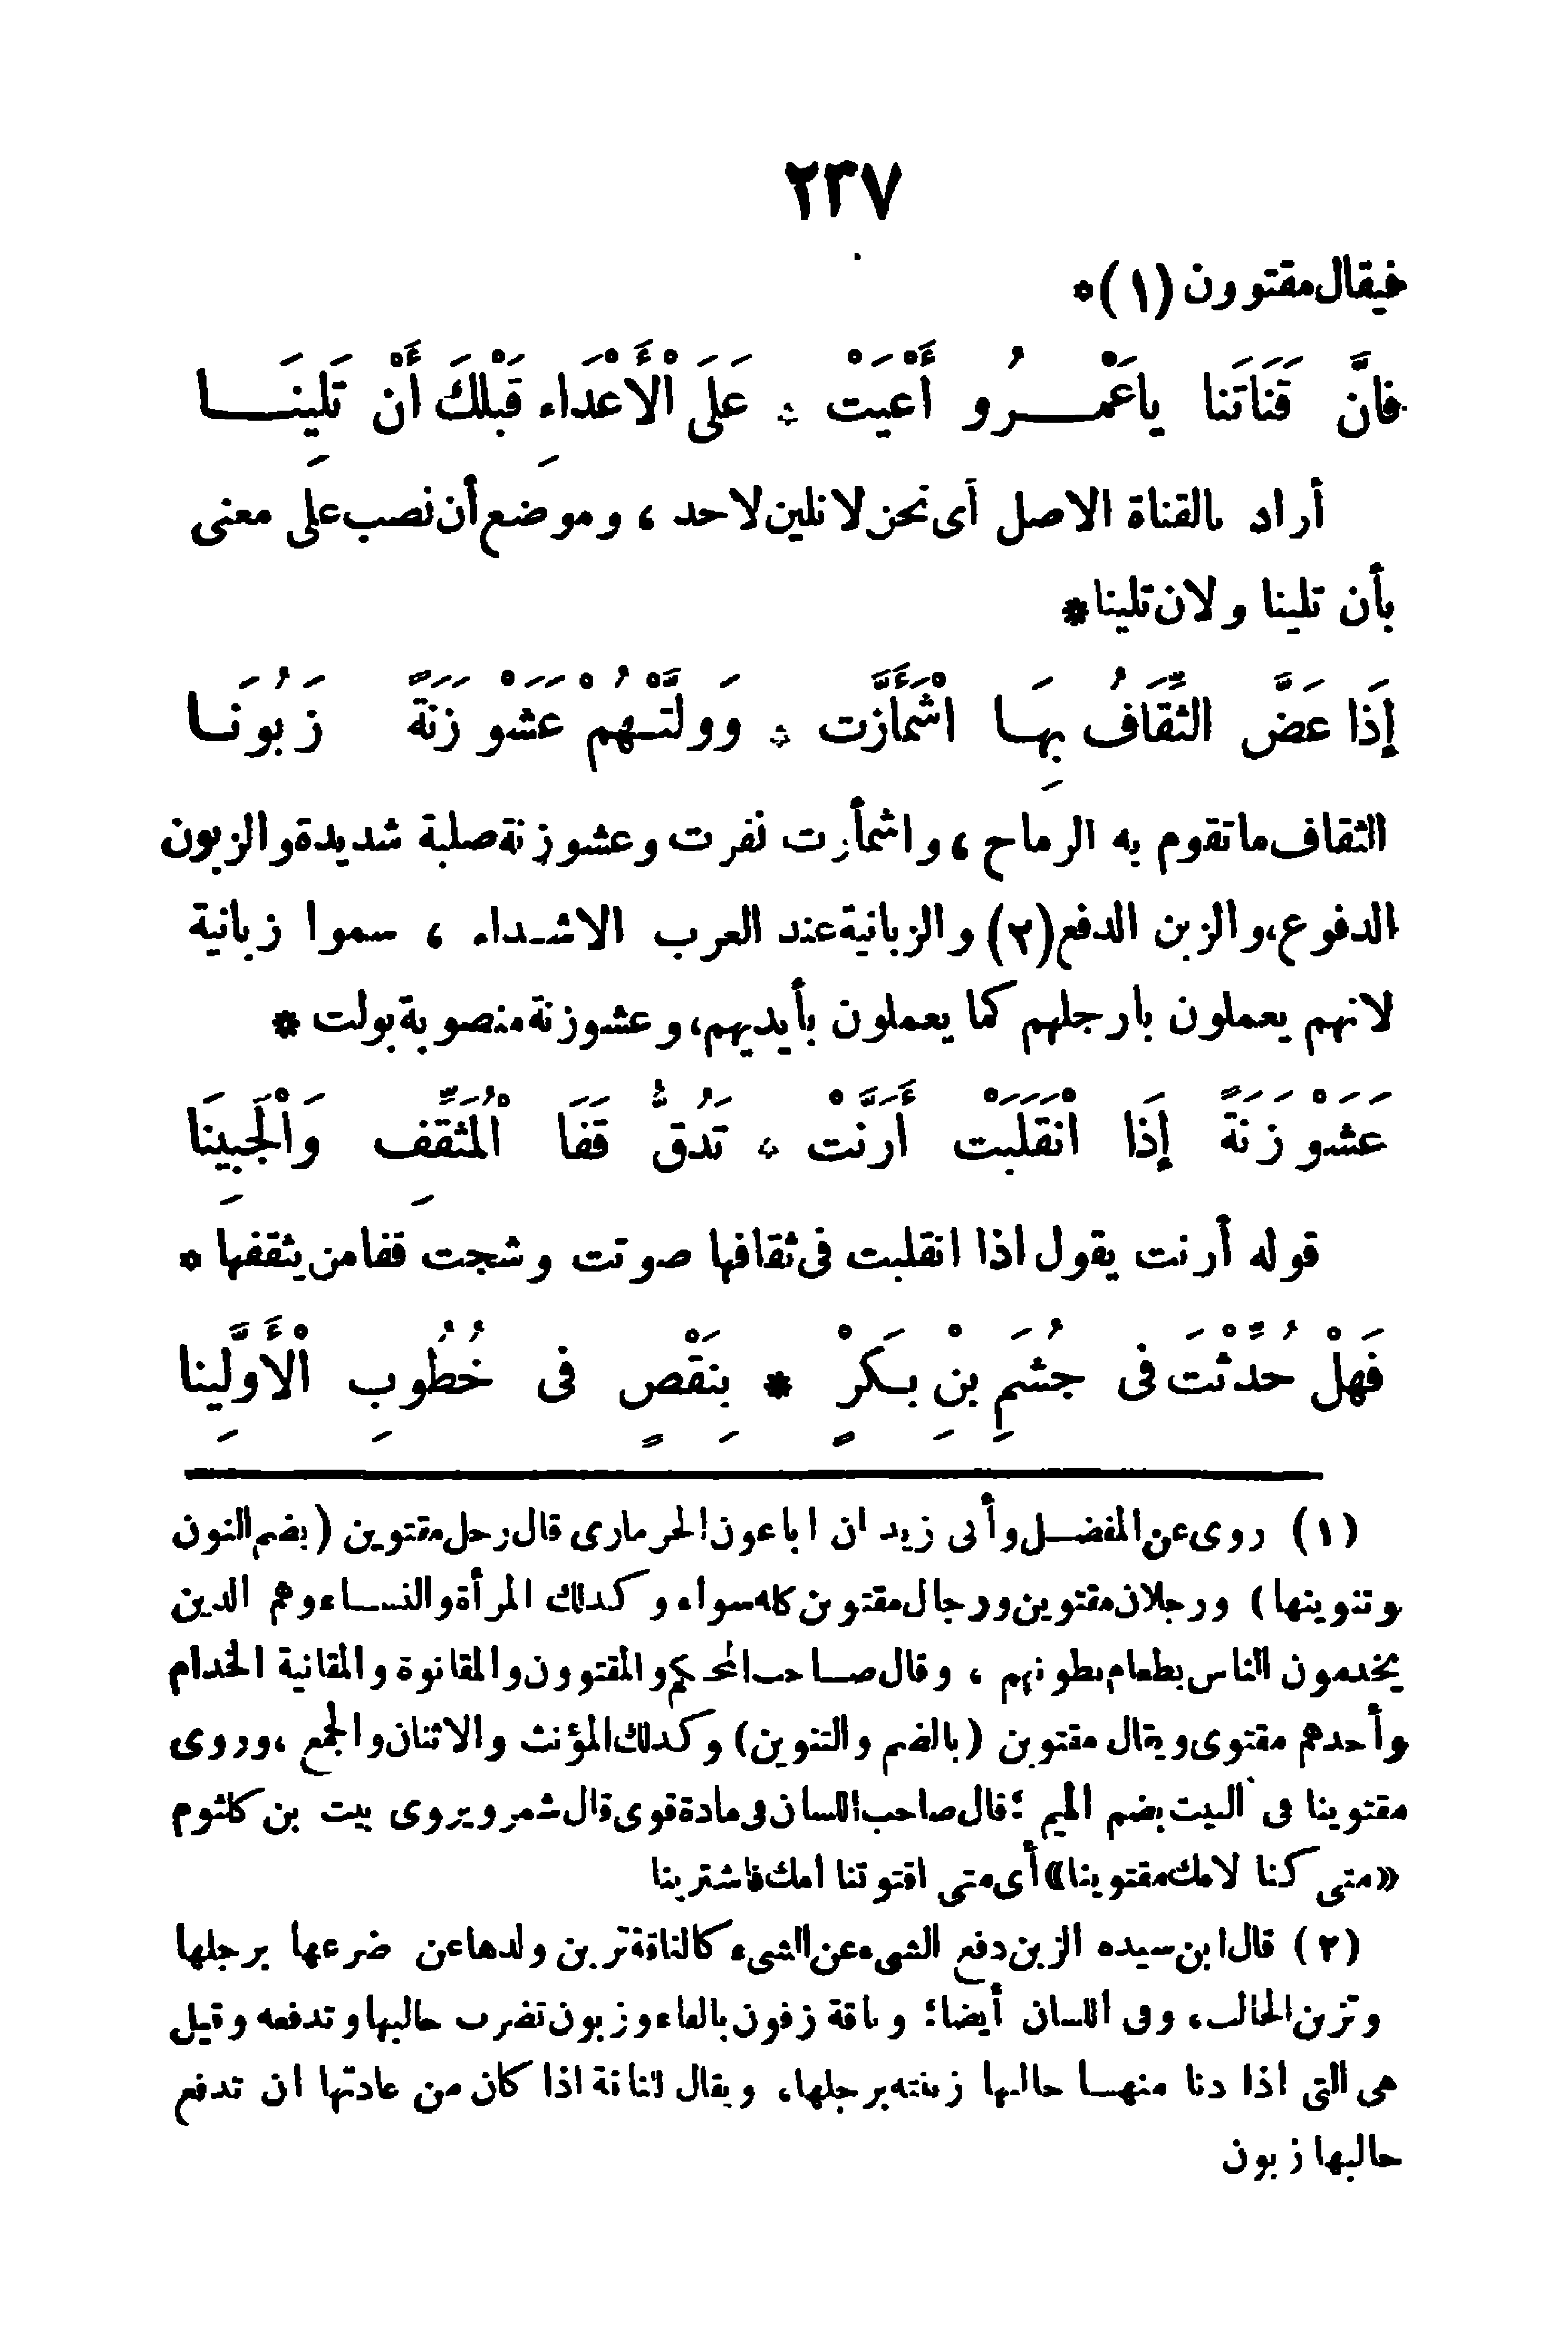 ٢٣٧
فيقال مقتوون (١)*
فانَّ قَنَاتَنا ياعَمْــرُو أَعْيَتْ * عَلَى الْأَعْدَاءِ قَبْلَكَ أَنْ تَلِينَــا
أراد بالقناة الاصل أى نحن لا نلين لاحد ، وموضع أن نصب على معنى
بأن تلينا ولان تلينا*
إِذَا عَضَّ الثِّقَافُ بِهَا اشْمَأَزَّتْ * وَوَلَّتْـهُمْ عَشَوْزَنَةً زَبُونَـا
الثقاف ما تقوم به الرماح ، واشمأزت نفرت وعشوزنة صلبة شديدة والزبون
الدفوع، والزبن الدفع (٢) والزبانية عند العرب الاشـداء ، سموا زبانية
لانهم يعملون بارجلهم كما يعملون بأيديهم، وعشوزنة منصوبة بولت *
عَشَوْزَنَةً إِذَا انْقَلَبَتْ أَرَنَّتْ * تَدُقُّ قَفَا الْمُثَقِّفِ وَالْجَبِينَا
قوله أرنت يقول اذا انقلبت فى ثقافها صوتت وشجت قفا من يثقفها *
فَهَلْ حُدِّثْتَ فى جُشَمِ بْنِ بَـكْرٍ * بِنَقْصٍ فى خُطُوبِ الْأَوَّلِينا
(١) روى عن المفضــل وأبى زيد ان ابا عون الحرمازى قال رجل مقتوين (بضم النون
وتنوينها) ورجلان مقتوين ورجال مقتوين كله سواء وكذلك المرأة والنســاء وهم الذين
يخدمون الناس بطعام بطونهم ، وقال صــاحب المحكم والمقتوون والمقانوة والمقانية الخدام
وأحدهم مقتوى ويقال مقتوين (بالضم والتنوين) وكذلك المؤنث والاثنان والجمع ، وروى
مقتوينا فى البيت بضم الميم ؛ قال صاحب اللسان فى مادة قوى قال شمر ويروى بيت بن كلثوم
«متى كنا لامك مقتوينا» أى متى اقتوتنا امك فاشترينا
(٢) قال ابن سيده الزبن دفع الشىء عن الشىء كالناقة تزبن ولدها عن ضرعها برجلها
وتزبن الحالب، وفى اللسان أيضا؛ وناقة زفون بالفاء وزبون تضرب حالبها وتدفعه وقيل
هى التى اذا دنا منهــا حالبها زبنته برجلها، ويقال للناقة اذا كان من عادتها ان تدفع
حالبها زبون